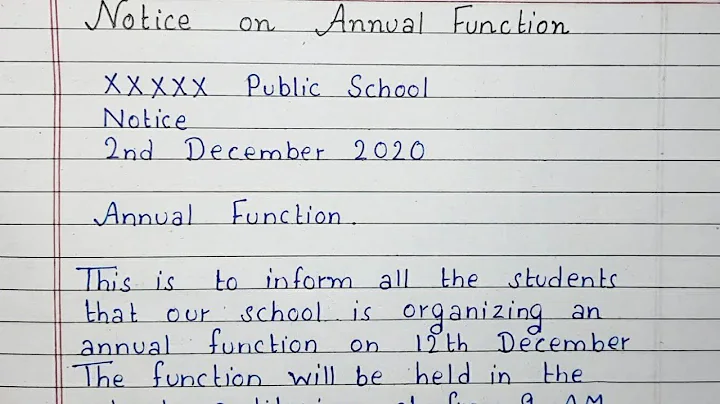 Notice on Annual Function
XXXXX Public School
Notice
2nd December 2020
Annual Function.
This is to inform all the students
that our school is organizing an
annual function on 12th December
The function will be held in the
9 AM